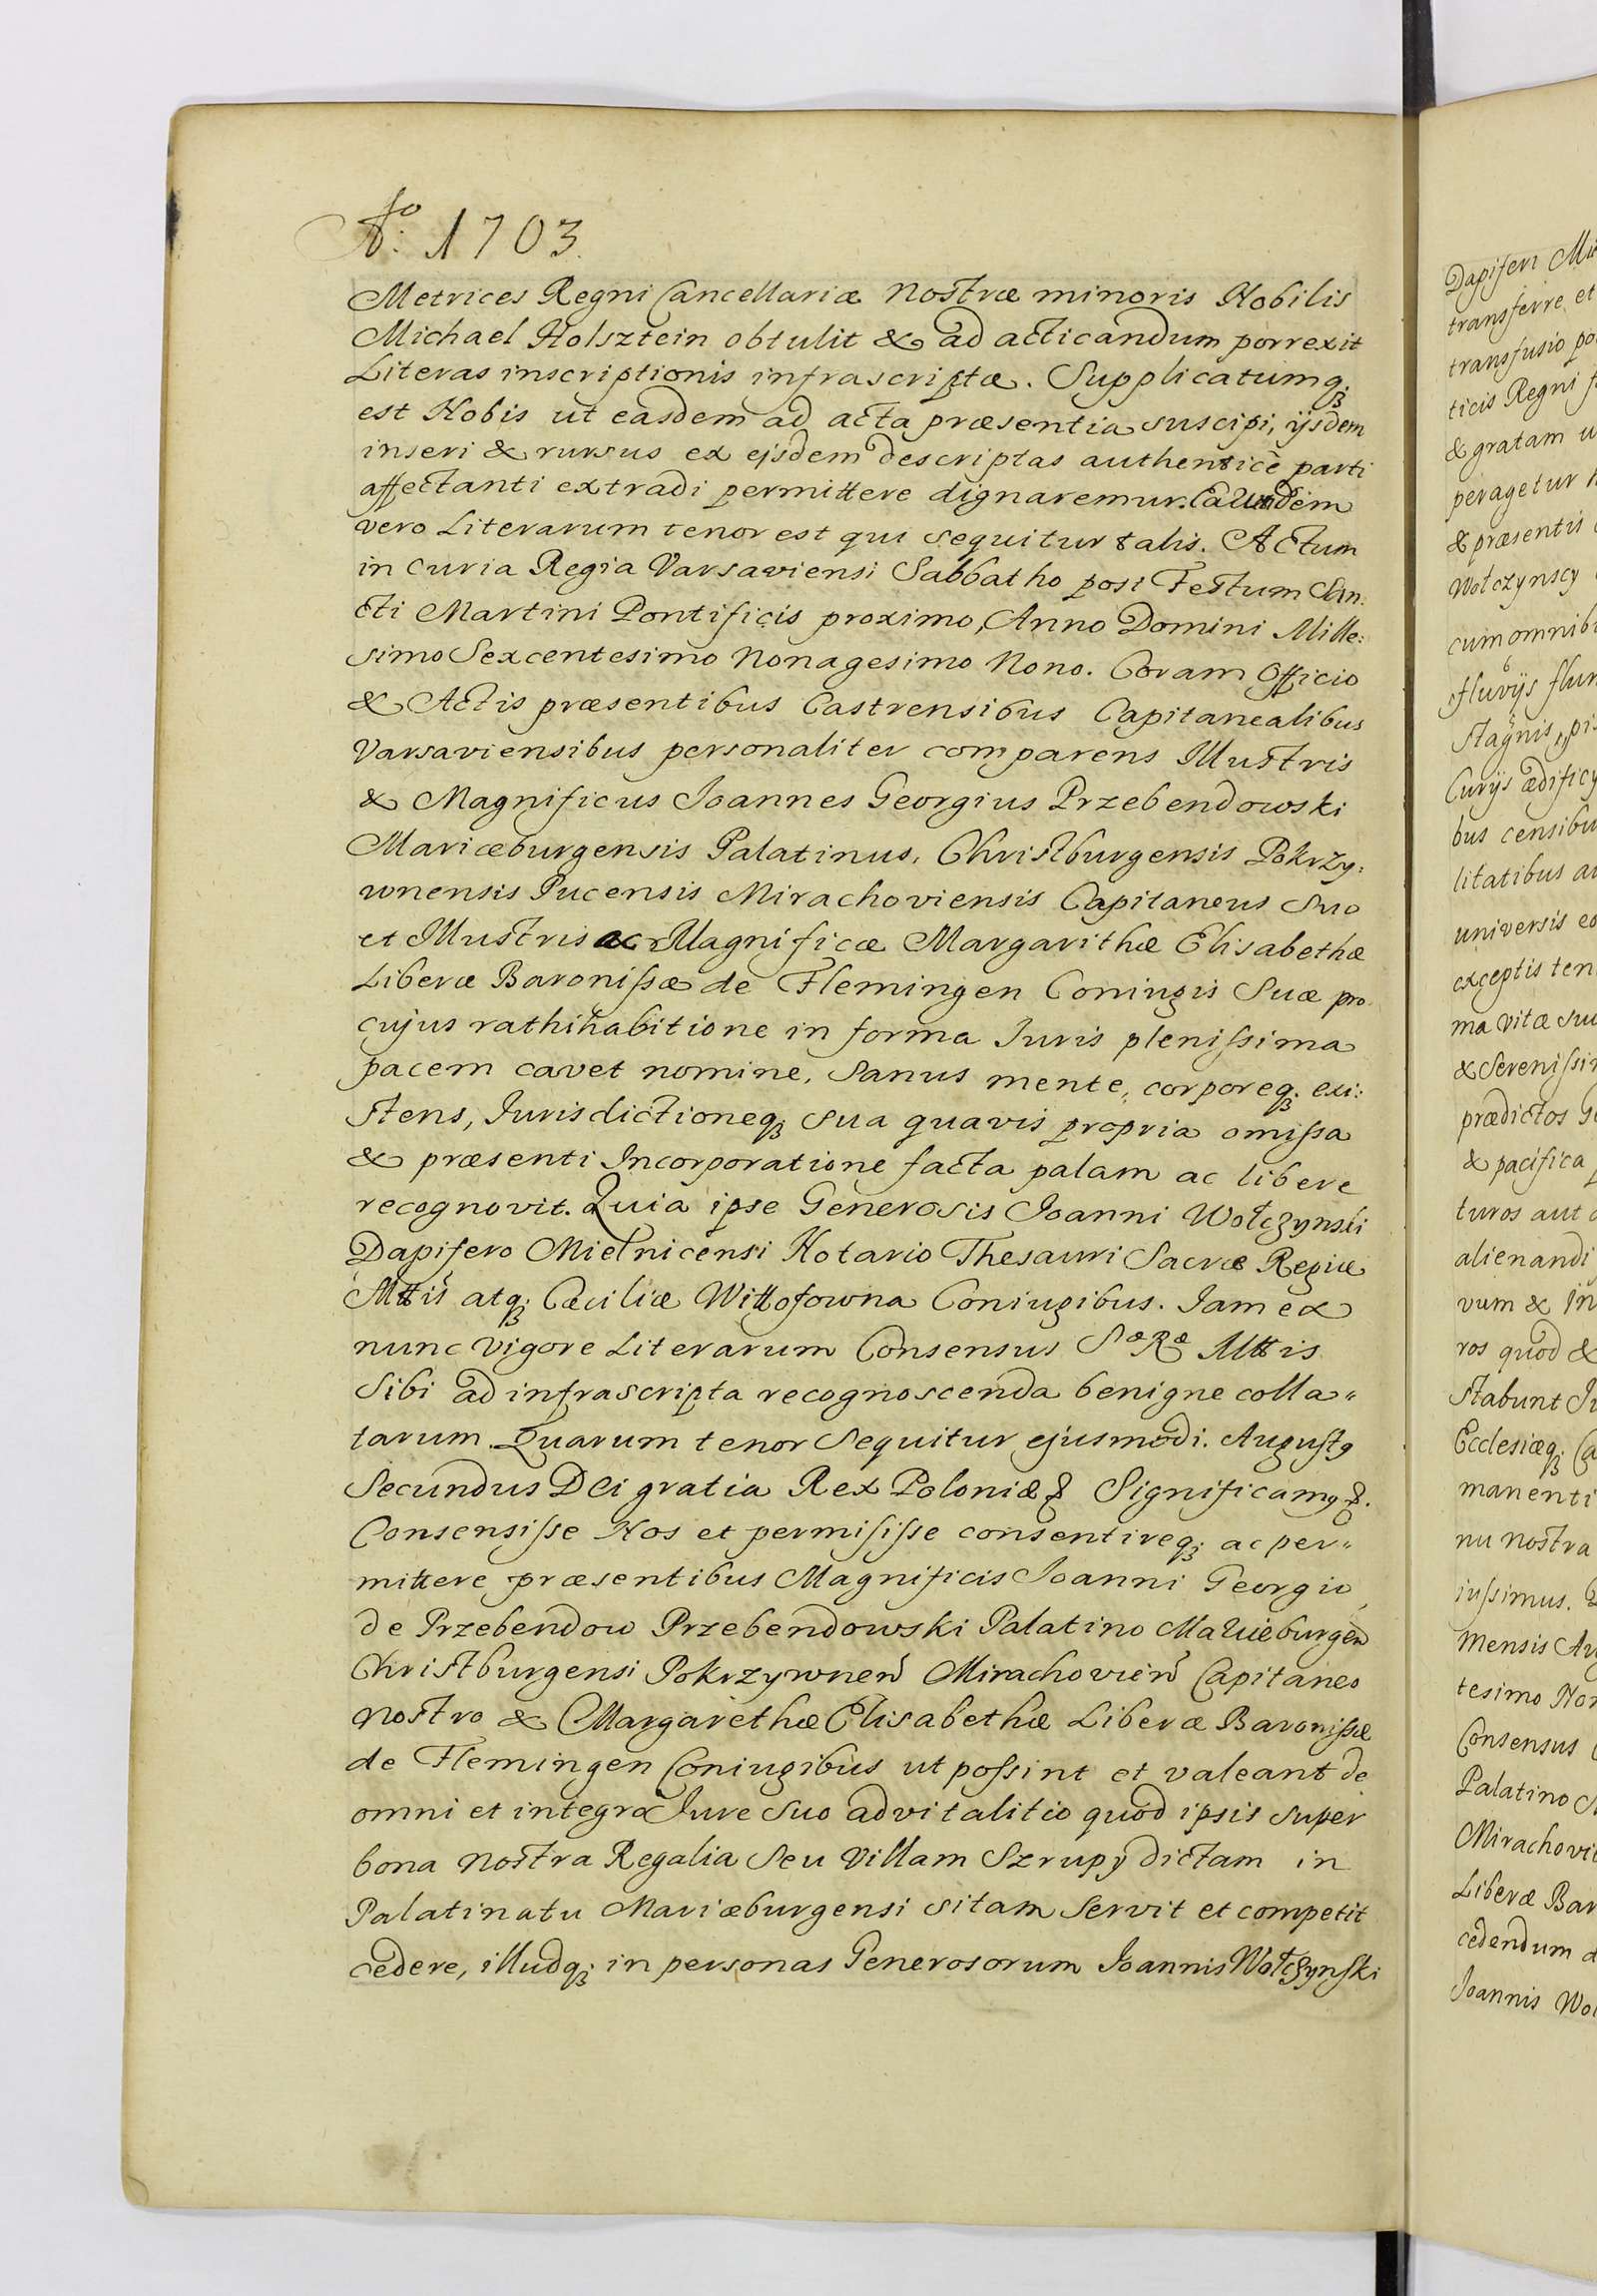 Aº: 1703.
Metrices Regni Cancellariæ nostræ minoris Nobilis
Michael Holsztein obtulit & ad acticandum porrexit
Literas inscriptionis infrascriptæ. Supplicatumq;
est Nobis ut easdem ad acta præsentia suscipi, ijsdem
inseri & rursus ex ejsdem descriptas authenticè parti
affectanti extradi permittere dignaremur. Earundem
vero Literarum tenor est qui sequitur talis. Actum
in Curia Regia Varsaviensi Sabbatho post Festum San:
cti Martini Pontificis proximo, Anno Domini Mille:
simo Sexcentesimo Nonagesimo Nono. Coram Officio
& Actis præsentibus Castrensibus Capitanealibus
Varsaviensibus personaliter comparens Illustris
& Magnificus Joannes Georgius Przebendowski
Mariæburgensis Palatinus, Christburgensis Pokrzy:
wnensis Pucensis Mirachoviensis Capitaneus Suo
et Illustris ac Magnificæ Margarithæ Elisabethæ
Liberæ Baronissæ de Flemingen Coniugis Suæ pro
cujus rathihabitione in forma Iuris plenissima
pacem cavet nomine, Sanus mente, corporeq; exi:
stens, Iurisdictioneq; sua quavis propria omissa
& præsenti Incorporatione facta palam ac libere
recognovit. Quia ipse Generosis Joanni Wołczynski
Dapifero Mielnicensi Notario Thesauri Sacræ Regiæ
Mttis atq; Cæciliæ Wittofowna Coniugibus. Iam ex
nunc vigore Literarum Consensus Sæ Ræ Mttis
Sibi ad infrascripta recognoscenda benigne colla„
tarum. Quarum tenor sequitur ejusmodi. Augustꝯ
Secundus Dei gratia Rex Poloniæ & Significamꝯ &.
Consensisse Nos et permisisse consentireq; ac per„
mittere præsentibus Magnificis Joanni Georgio
de Przebendow Przebendowski Palatino Mariæburgen
Christburgensi Pokrzywnen Mirachovien Capitaneo
nostro & Margarethæ Elisabethæ Liberæ Baronissæ
de Flemingen Coniugibus ut possint et valeant de
omni et integro Iure suo advitalitio quod ipsis super
bona nostra Regalia seu Villam Szrupy dictam in
Palatinatu Mariæburgensi sitam servit et competit
cedere, illudq; in personas Generosorum Joannis Wołczynski
Dapiferi
transferre et
transfusio
ticis Regni
& gratam
peragetur
& præsentis
Wołczynscy
cum omnib
fluvijs
Stagnis,
Curijs ædificy
bus censibu
litatibus
universis
exceptis
ma vitæ
& Serenissi
prædictos
& pacifica
turos aut
alienandi
vum & In
ros quod &
stabunt
Ecclesiæq;
manenti
nu nostra
iussimus.
Mensis
tesimo
Consensus
Palatino
Mirachovi
Liberæ Bar
cedendum
Joannis